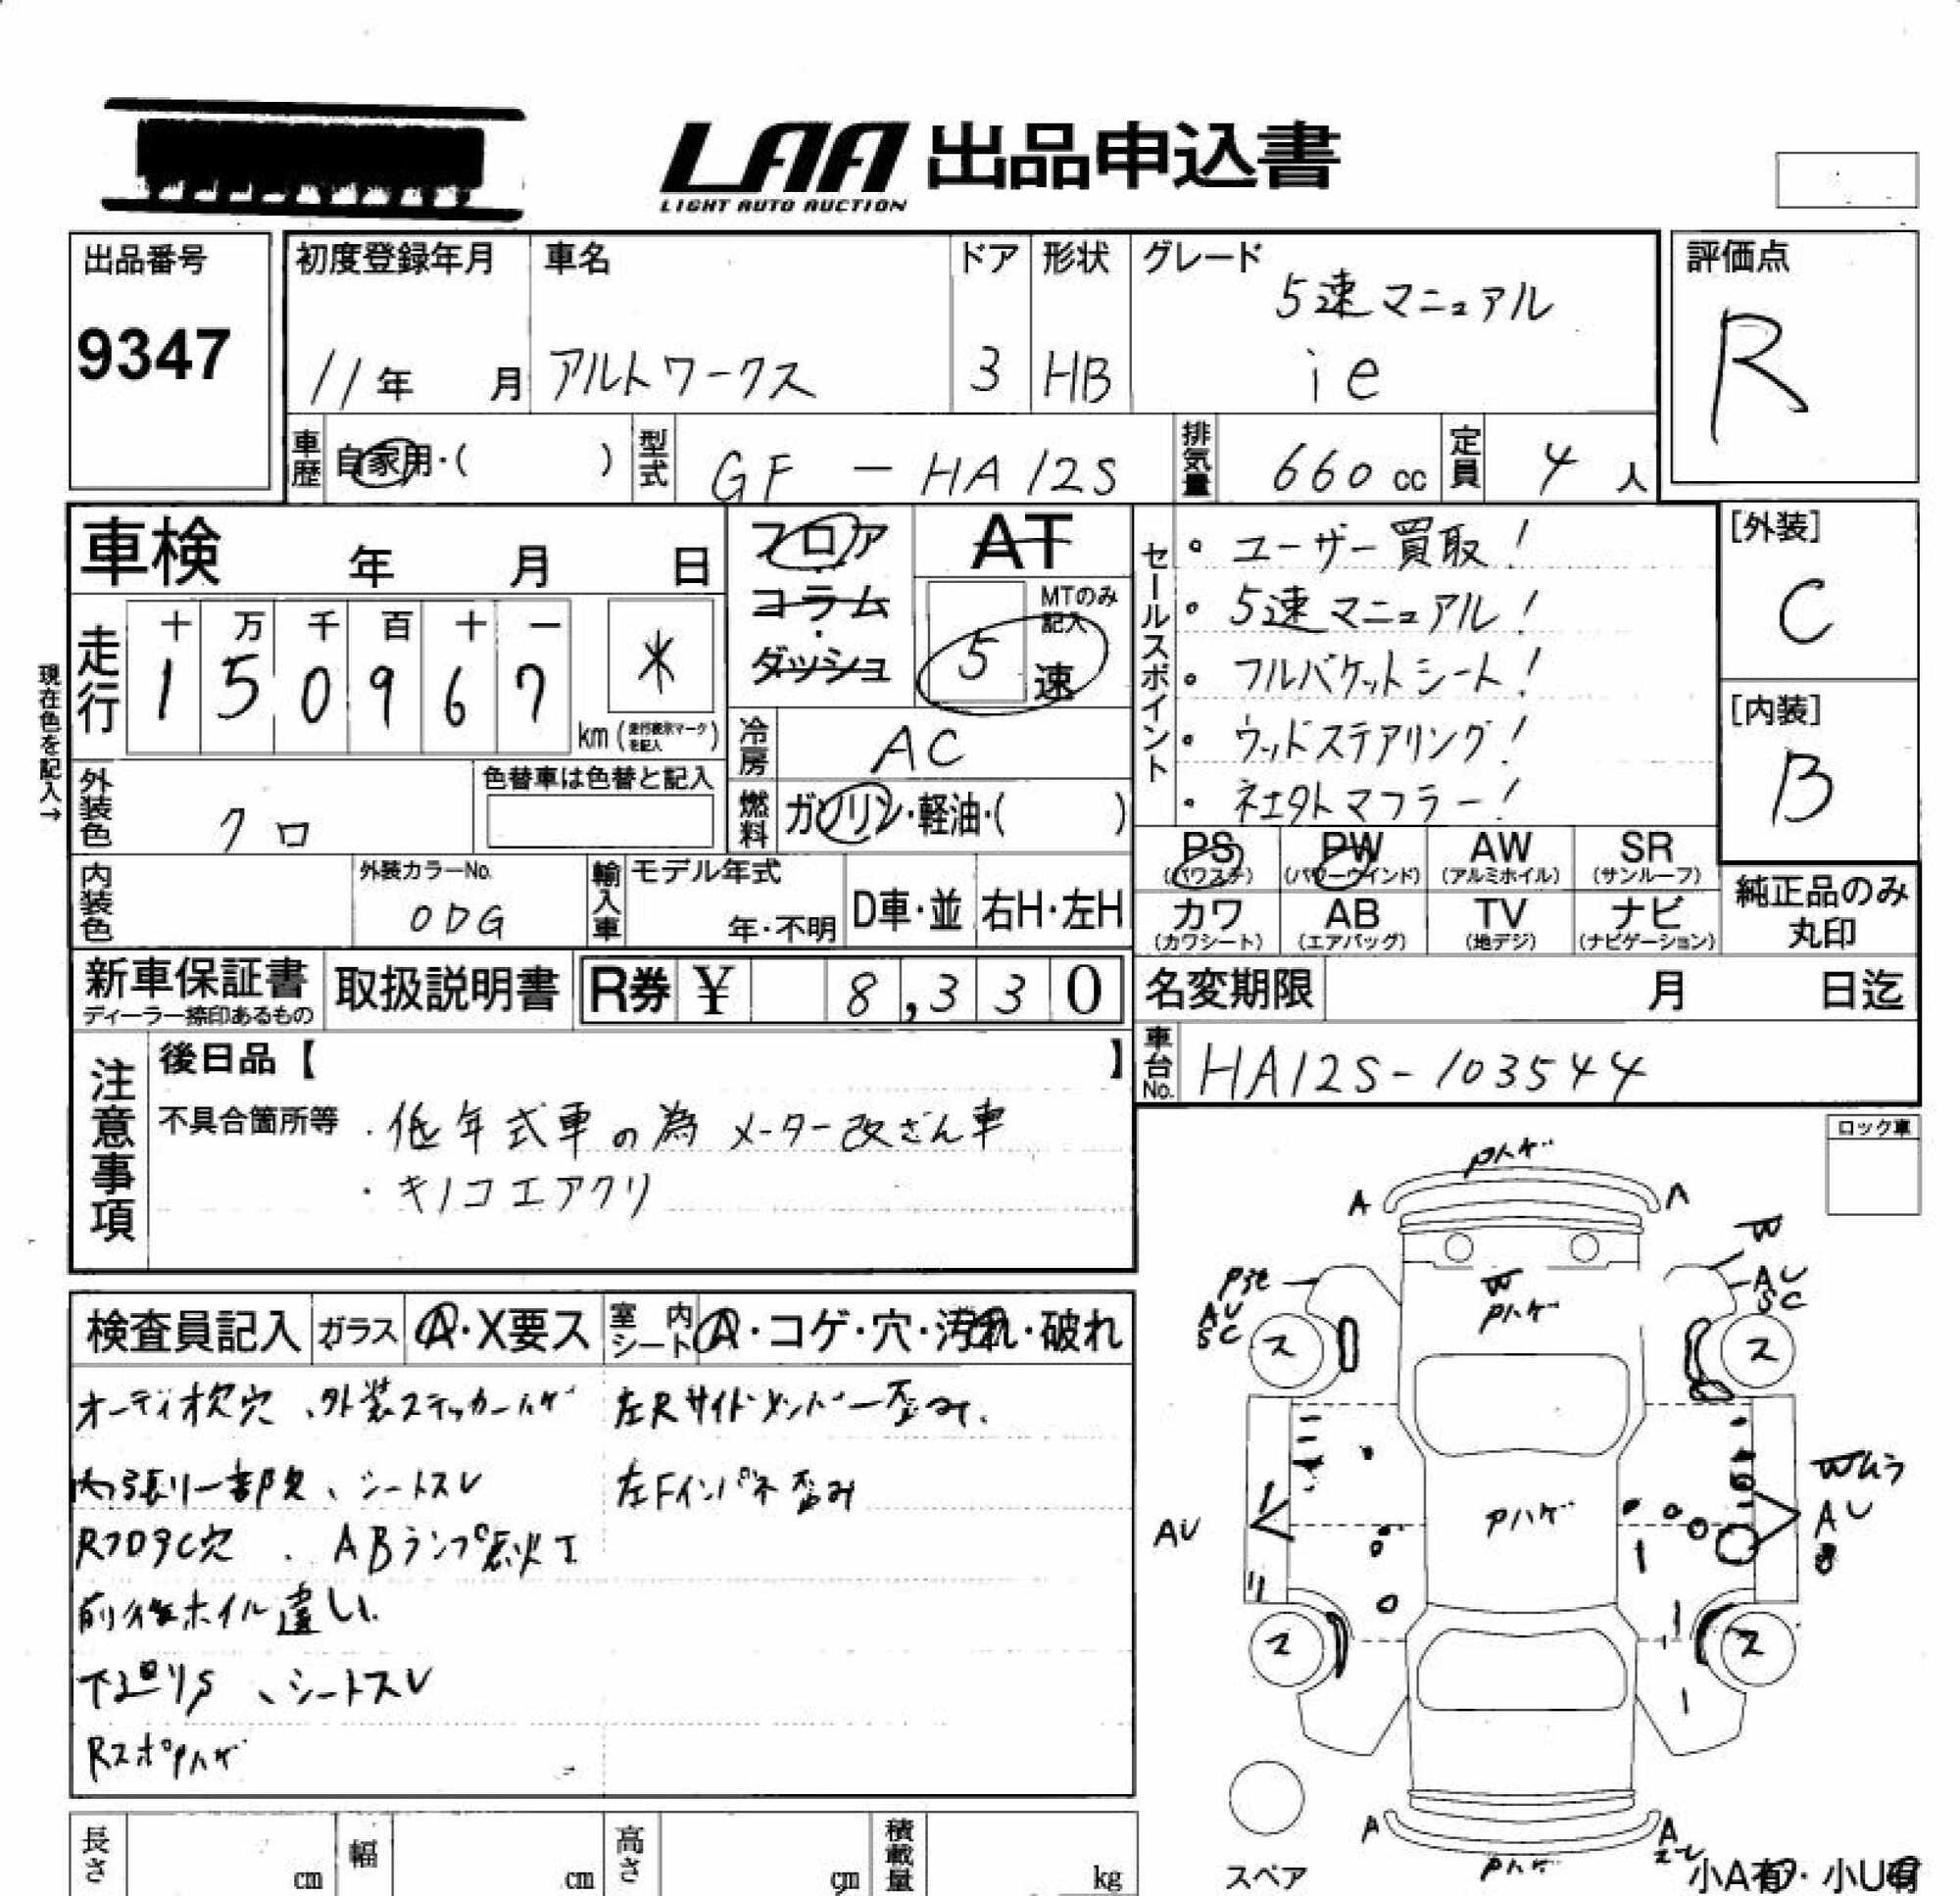 LAA 出品申込書
LIGHT AUTO AUCTION
出品番号
9347
初度登録年月
11年 月
車名
アルトワークス
ドア
3
形状
HB
グレード
5速マニュアル
ie
評価点
R
車歴 自家用・( )
型式 GF - HA12S
排気量 660 cc
定員 4 人
車検 年 月 日
フロア・コラム・ダッシュ
AT
MTのみ記入
5 速
現在色を記入→
走行
十 万 千 百 十 一
1 5 0 9 6 7
*
km(走行表示マークを記入)
冷房 AC
燃料 ガソリン・軽油・( )
外装色 クロ
色替車は色替と記入
内装色
外装カラーNo.
0DG
輸入車
モデル年式
年・不明
D車・並
右H・左H
セールスポイント
・ユーザー買取!
・5速マニュアル!
・フルバケットシート!
・ウッドステアリング!
・マフラー!
[外装]
C
[内装]
B
PS (パワステ)
PW (パワーウインド)
AW (アルミホイル)
SR (サンルーフ)
カワ (カワシート)
AB (エアバッグ)
TV (地デジ)
ナビ (ナビゲーション)
純正品のみ丸印
新車保証書
ディーラー捺印あるもの
取扱説明書
R券 ¥ 8,330
名変期限 月 日迄
車台No. HA12S-103544
注意事項
後日品【 】
不具合箇所等
・低年式車の為メーター改ざん車
・キノコエアクリ
ロック車
検査員記入
ガラス A・X要ス
室内シート A・コゲ・穴・汚れ・破れ
オーディオ欠穴、外装ステッカーハゲ
左Rサイドメンバー歪み、
内張り一部欠、シートスレ
左Fインパネ歪み
RフロアC穴、ABランプ点灯
前後ホイル違い
下廻りS、シートスレ
RスポPハゲ
Pハゲ
A
A
W
AU
SC
AU
SC
W
Pハゲ
ス
ス
Wムラ
AU
Pハゲ
AU
ス
ス
A
A
Pハゲ
スペア
小A有・小U有
長さ cm
幅 cm
高さ cm
積載量 kg